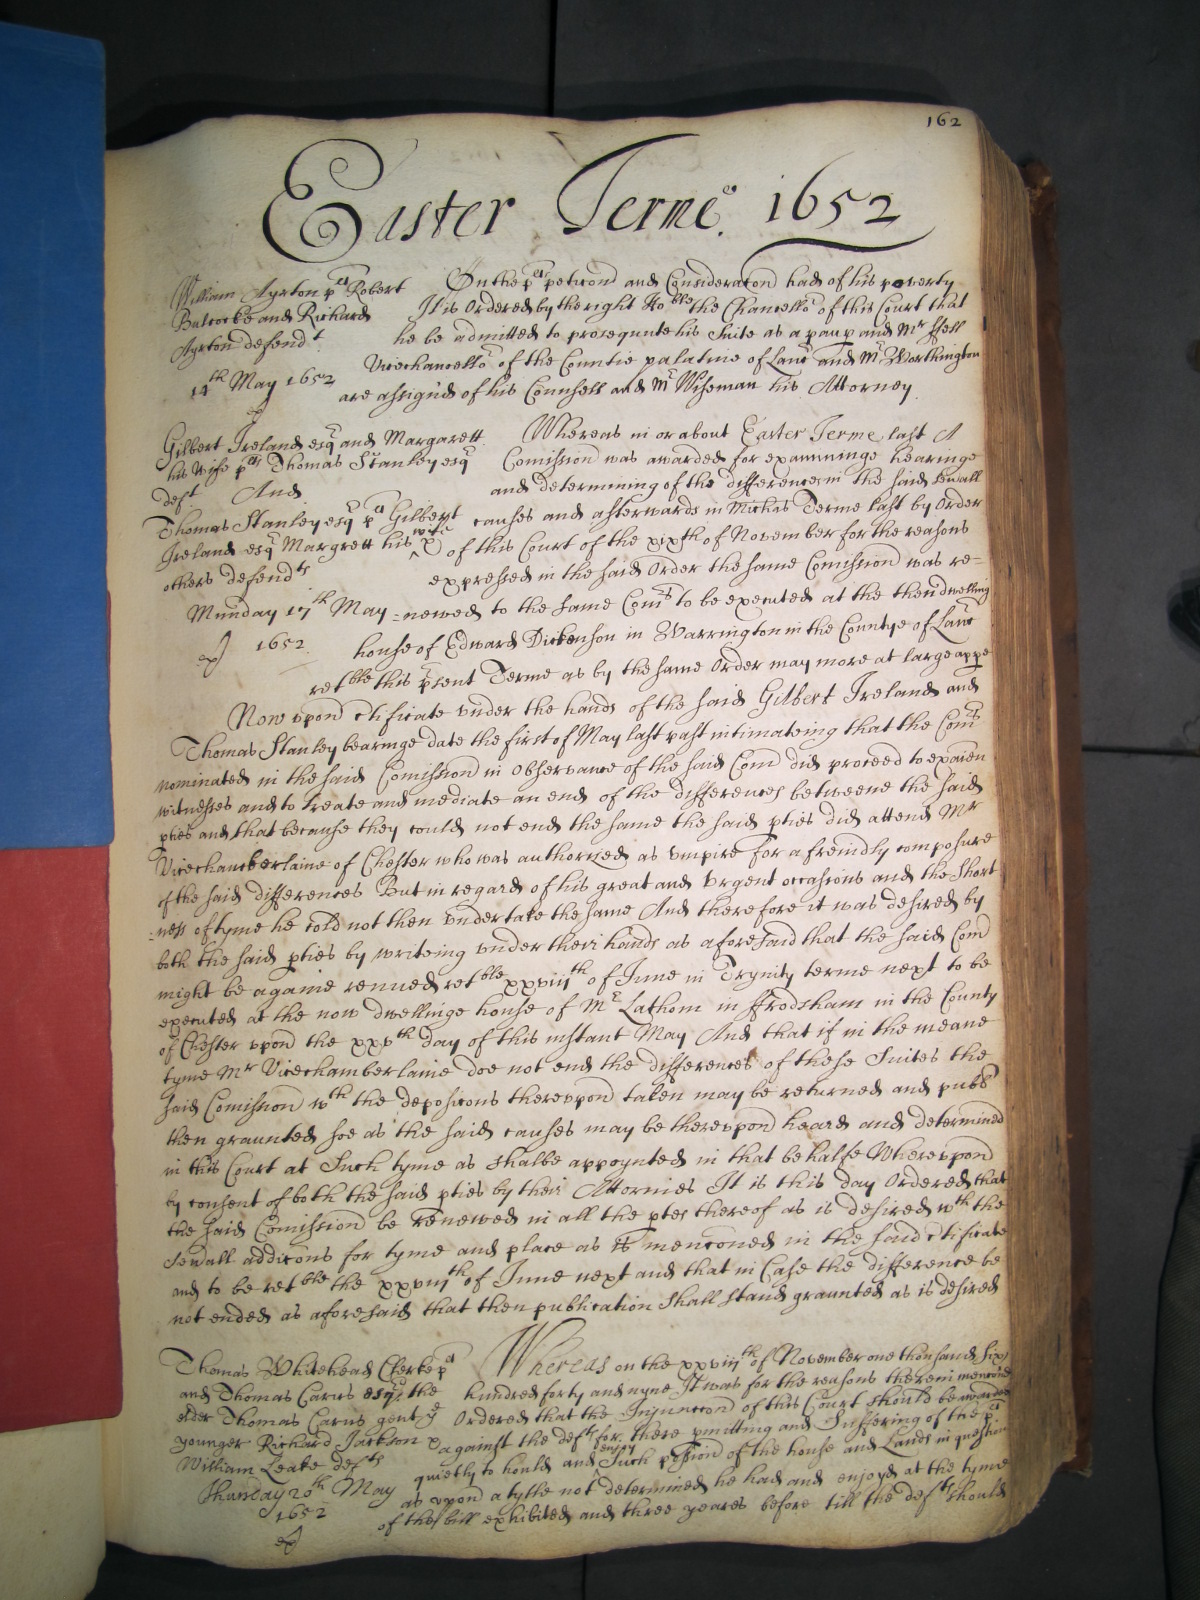 162
Easter Terme. 1652
William Ayrton plt Robert
Balcocke and Richard
Ayrton defendt
14th May 1652
On the plts peticond and Consideracond had of his poverty
It is Ordered by the right Hoble the Chancellor of this Court that
he be admitted to prosequute his Suite as a paup and Mr ffell
Vicechancellor of the Countie palatine of Lanc and Mr Worthington
are assigned of his Counsell and Mr Wiseman his Attorney
Gilbert Ireland esqr and Margarett
his wife plts Thomas Stanley esqr
deft And
Thomas Stanley esqr plt Gilbert
Ireland esqr Margrett his wife &
others defendts
Munday 17th May
1652
ex
Whereas in or about Easter Terme last A
Comission was awarded for examininge hearinge
and determining of the differences in the said sevall
causes and afterwards in Michas Terme last by Order
of this Court of the xixth of November for the reasons
expressed in the said Order the same Comission was re=
=newed to the same Comrs to be executed at the then dwelling
house of Edward Dickenson in Warrington in the Countye of Lanc
retble this psent Terme as by the same Order may more at large appe
Now vpon ctificate vnder the hands of the said Gilbert Ireland and
Thomas Stanley bearinge date the first of May last past intimateing that the Comrs
nominated in the said Comission in observance of the said Com did proceed to exaien
witnesses and to treate and mediate an end of the differences betweene the said
pties and that because they could not end the same the said pties did attend Mr
Vicechamberlaine of Chester who was authorised as vmpire for a freindly composure
of the said differences But in regard of his great and vrgent occasions and the short
=ness of tyme he cold not then vndertake the same And therefore it was desired by
both the said pties by writeing vnder their hands as aforesaid that the said Com
might be againe renued retble xxviijth of June in Trynity terme next to be
executed at the now dwellinge house of Mr Lathom in ffrodsham in the County
of Chester vpon the xxvth day of this instant May And that if in the meane
tyme Mr Vicechamberlaine doe not end the differences of these Suites the
said Comission wth the deposicons therevpond taken may be returned and publ
then graunted soe as the said causes may be therevpond heard and determined
in this Court at Such tyme as shalbe appoynted in that behalfe Wherevpond
by consent of both the said pties by their Attornies It is this day Ordered that
the said Comission be renewed in all the ptes thereof as is desired wth the
sevall addicons for tyme and place as is menconed in the said ctificate
and to be retble the xxviijth of June next and that in Case the difference be
not ended as aforesaid that then publication shall stand graunted as is desired
Thomas Whitehead Clerke plt
and Thomas Carus esqr the
elder Thomas Carus gent ye
younger Richard Jackson &
William Leake defts
Thursday 20th May
1652
ex
Whereas on the xxviijth of November one thousand six
hundred forty and nyne It was for the reasons therein menconed
Ordered that the Injunccond of this Court should be awarded
against the defts for there pmitting and Suffering of the plt
quietly to hould and enioy Such possion of the house and Lands in question
as vpond a tytle not determined he had and enjoyed at the tyme
of the bill exhibited and three yeares before till the defts should